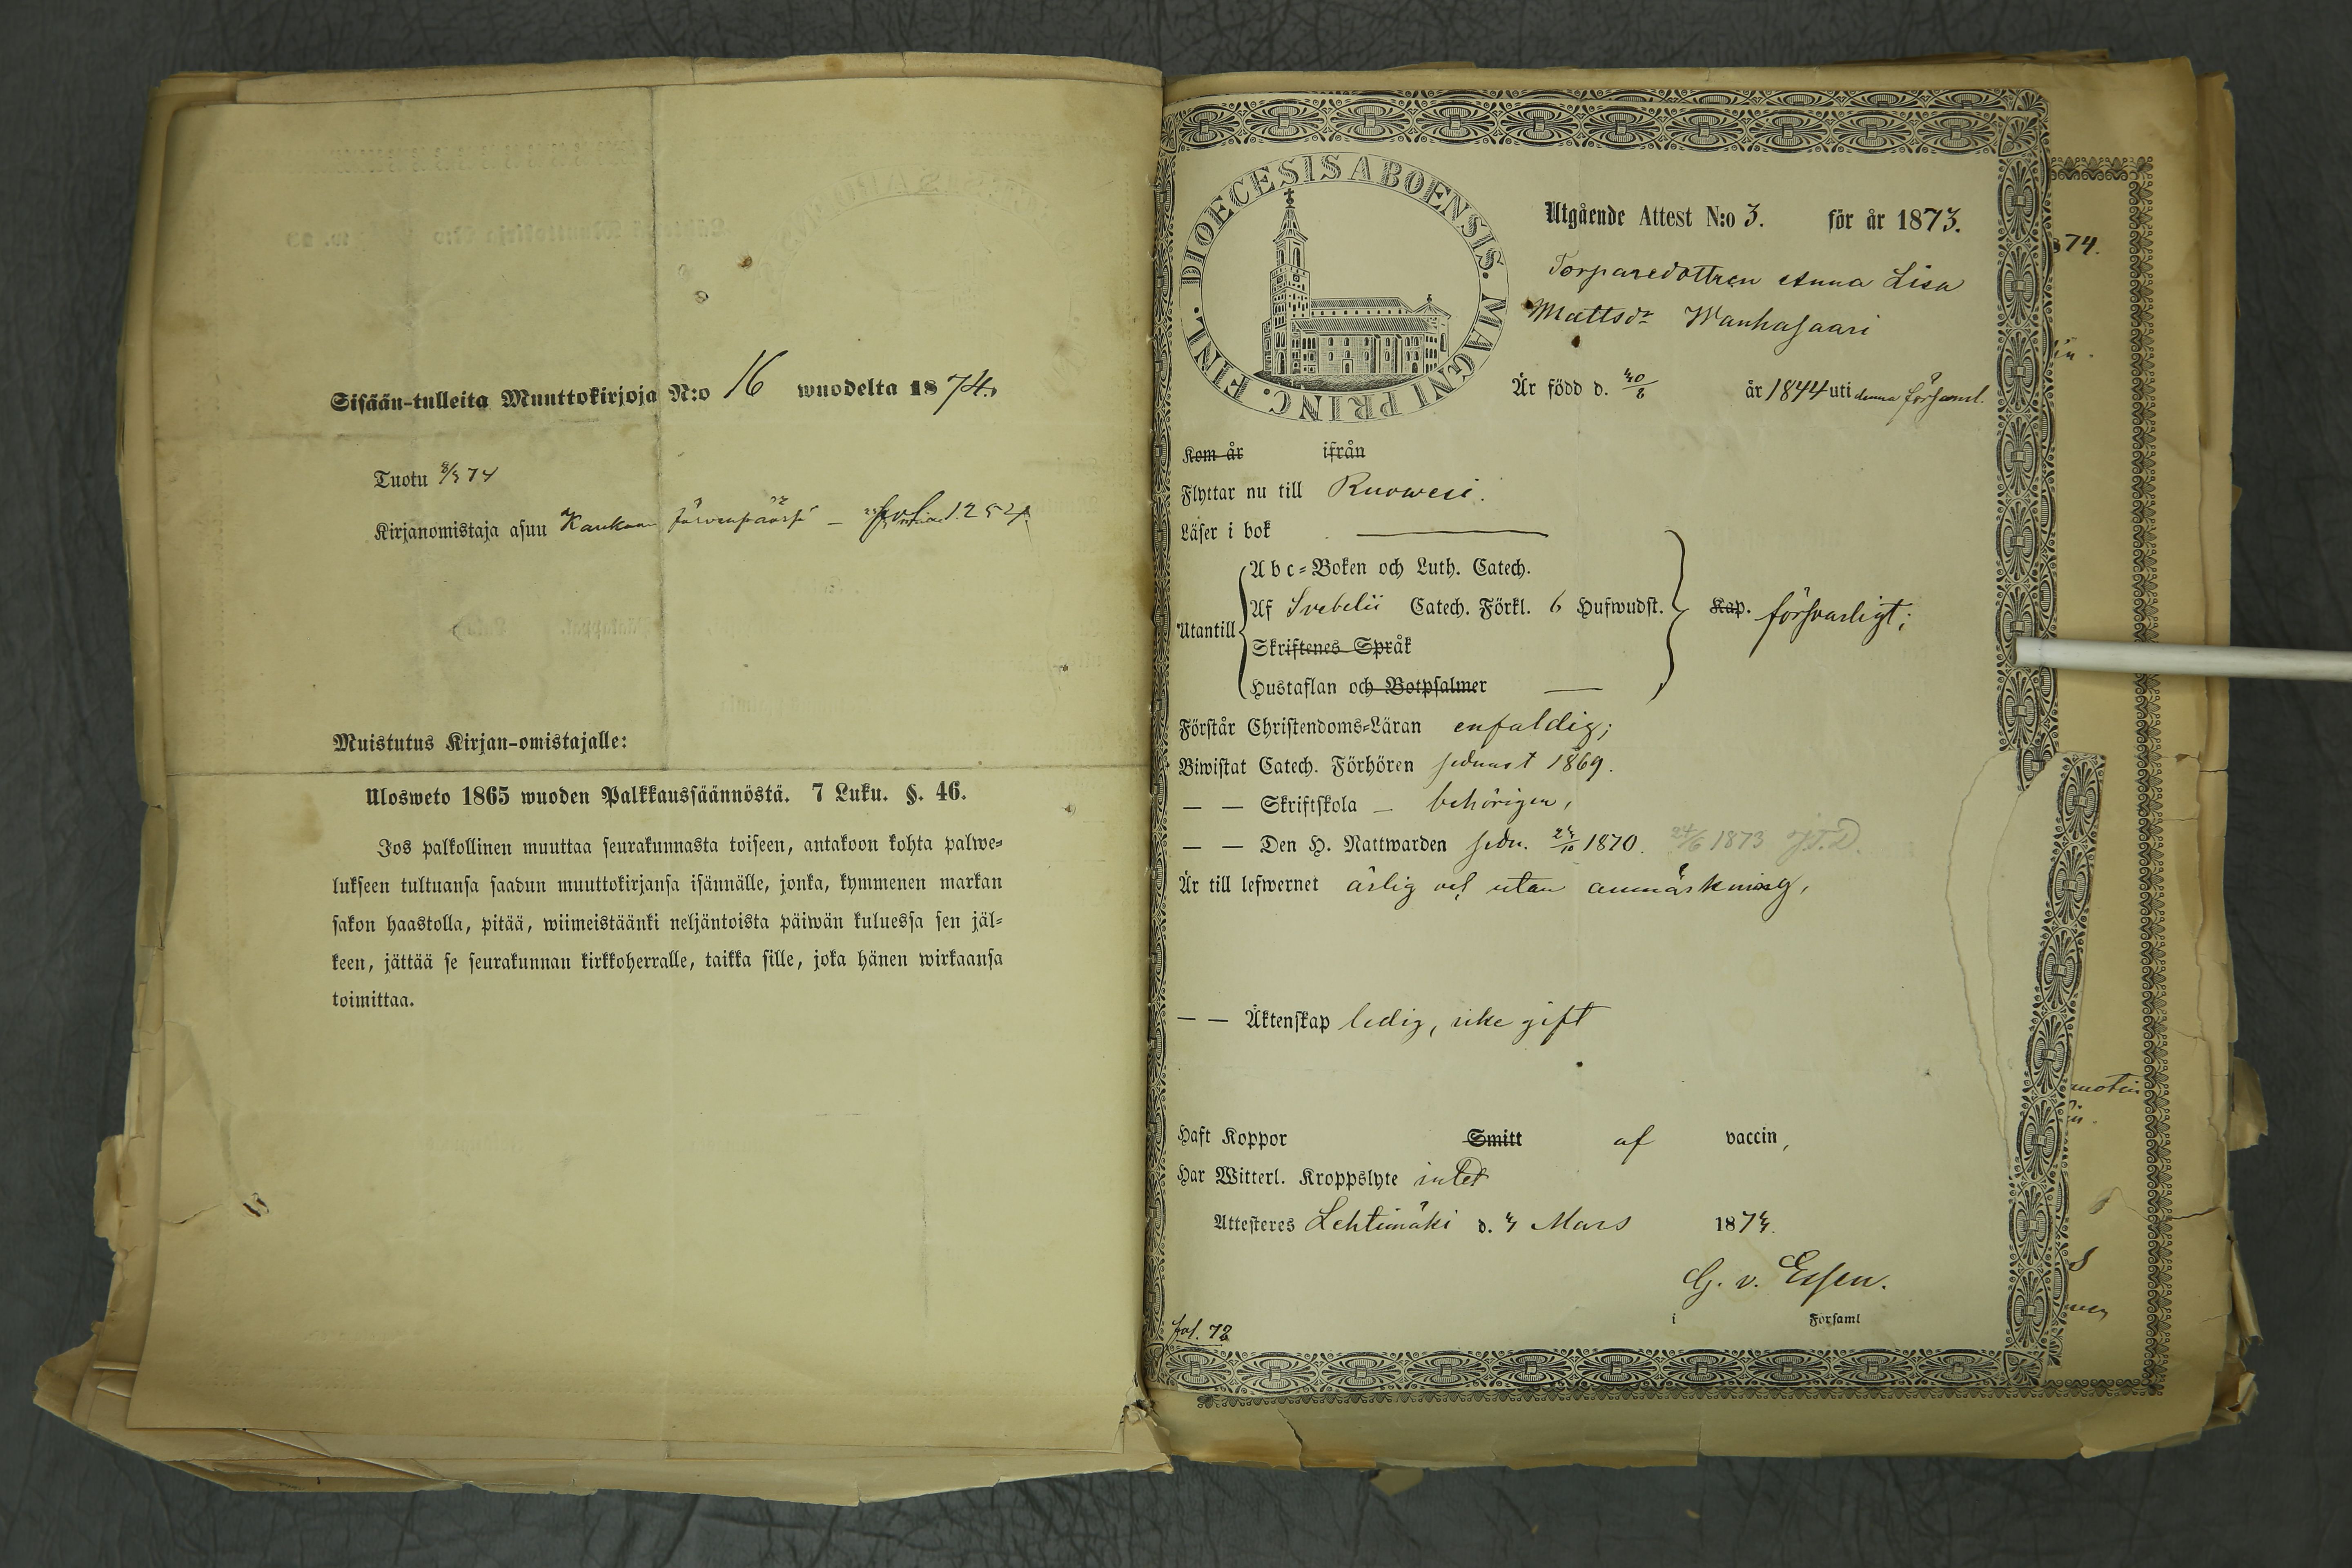 Sisään-tulleita Muuttokirjoja N:o 16 wuodelta 1874.
Tuotu 8/3 74
Kirjanomistaja asuu Kaukaan Järvenpäässä –
Muistutus Kirjan-omistajalle:
Ulosweto 1865 wuoden Palkkaussäännöstä. 7 Luku. §. 46.
Jos palkollinen muuttaa seurakunnasta toiseen, antakoon kohta palwe-
lukseen tultuansa saadun muuttokirjansa isännälle, jonka, kymmenen markan
sakon haastolla, pitää, wiimeistäänki neljäntoista päiwän kuluessa sen jäl-
keen, jättää se seurakunnan kirkkoherralle, taikka sille, joka hänen wirkaansa
toimittaa.
DIOECESIS ABOENSIS. MAGNI PRINC. FINL.
Utgående Attest N:o 3. för år 1873.
Torparedottren Anna Lisa
Mattsdr Wanhasaari
Är född d. år 1844 uti denna församl.
Kom år ifrån
Flyttar nu till Ruowesi.
Läser i bok
Utantill
Abc-Boken och Luth. Catech.
Af Svebelii Catech. Förkl. 6 Hufwudst.
Skriftenes Språk
Hustaflan och Botpsalmer
Kap. försvarligt;
Förstår Christendoms-Läran enfaldig;
Biwistat Catech. Förhören sednast 1869.
— — Skriftskola – behörigen,
— — Den H. Nattwarden sedn. 1870. 24/6 1873
Är till lefwernet ärlig och utan anmärkning,
— — Äktenskap ledig, icke gift
Haft Koppor Smitt af vaccin,
Har Witterl. Kroppslyte intet
Attesteres Lehtimäki d. 4 Mars 1874.
G. v. Essen.
i Församl
fol. 72
74.